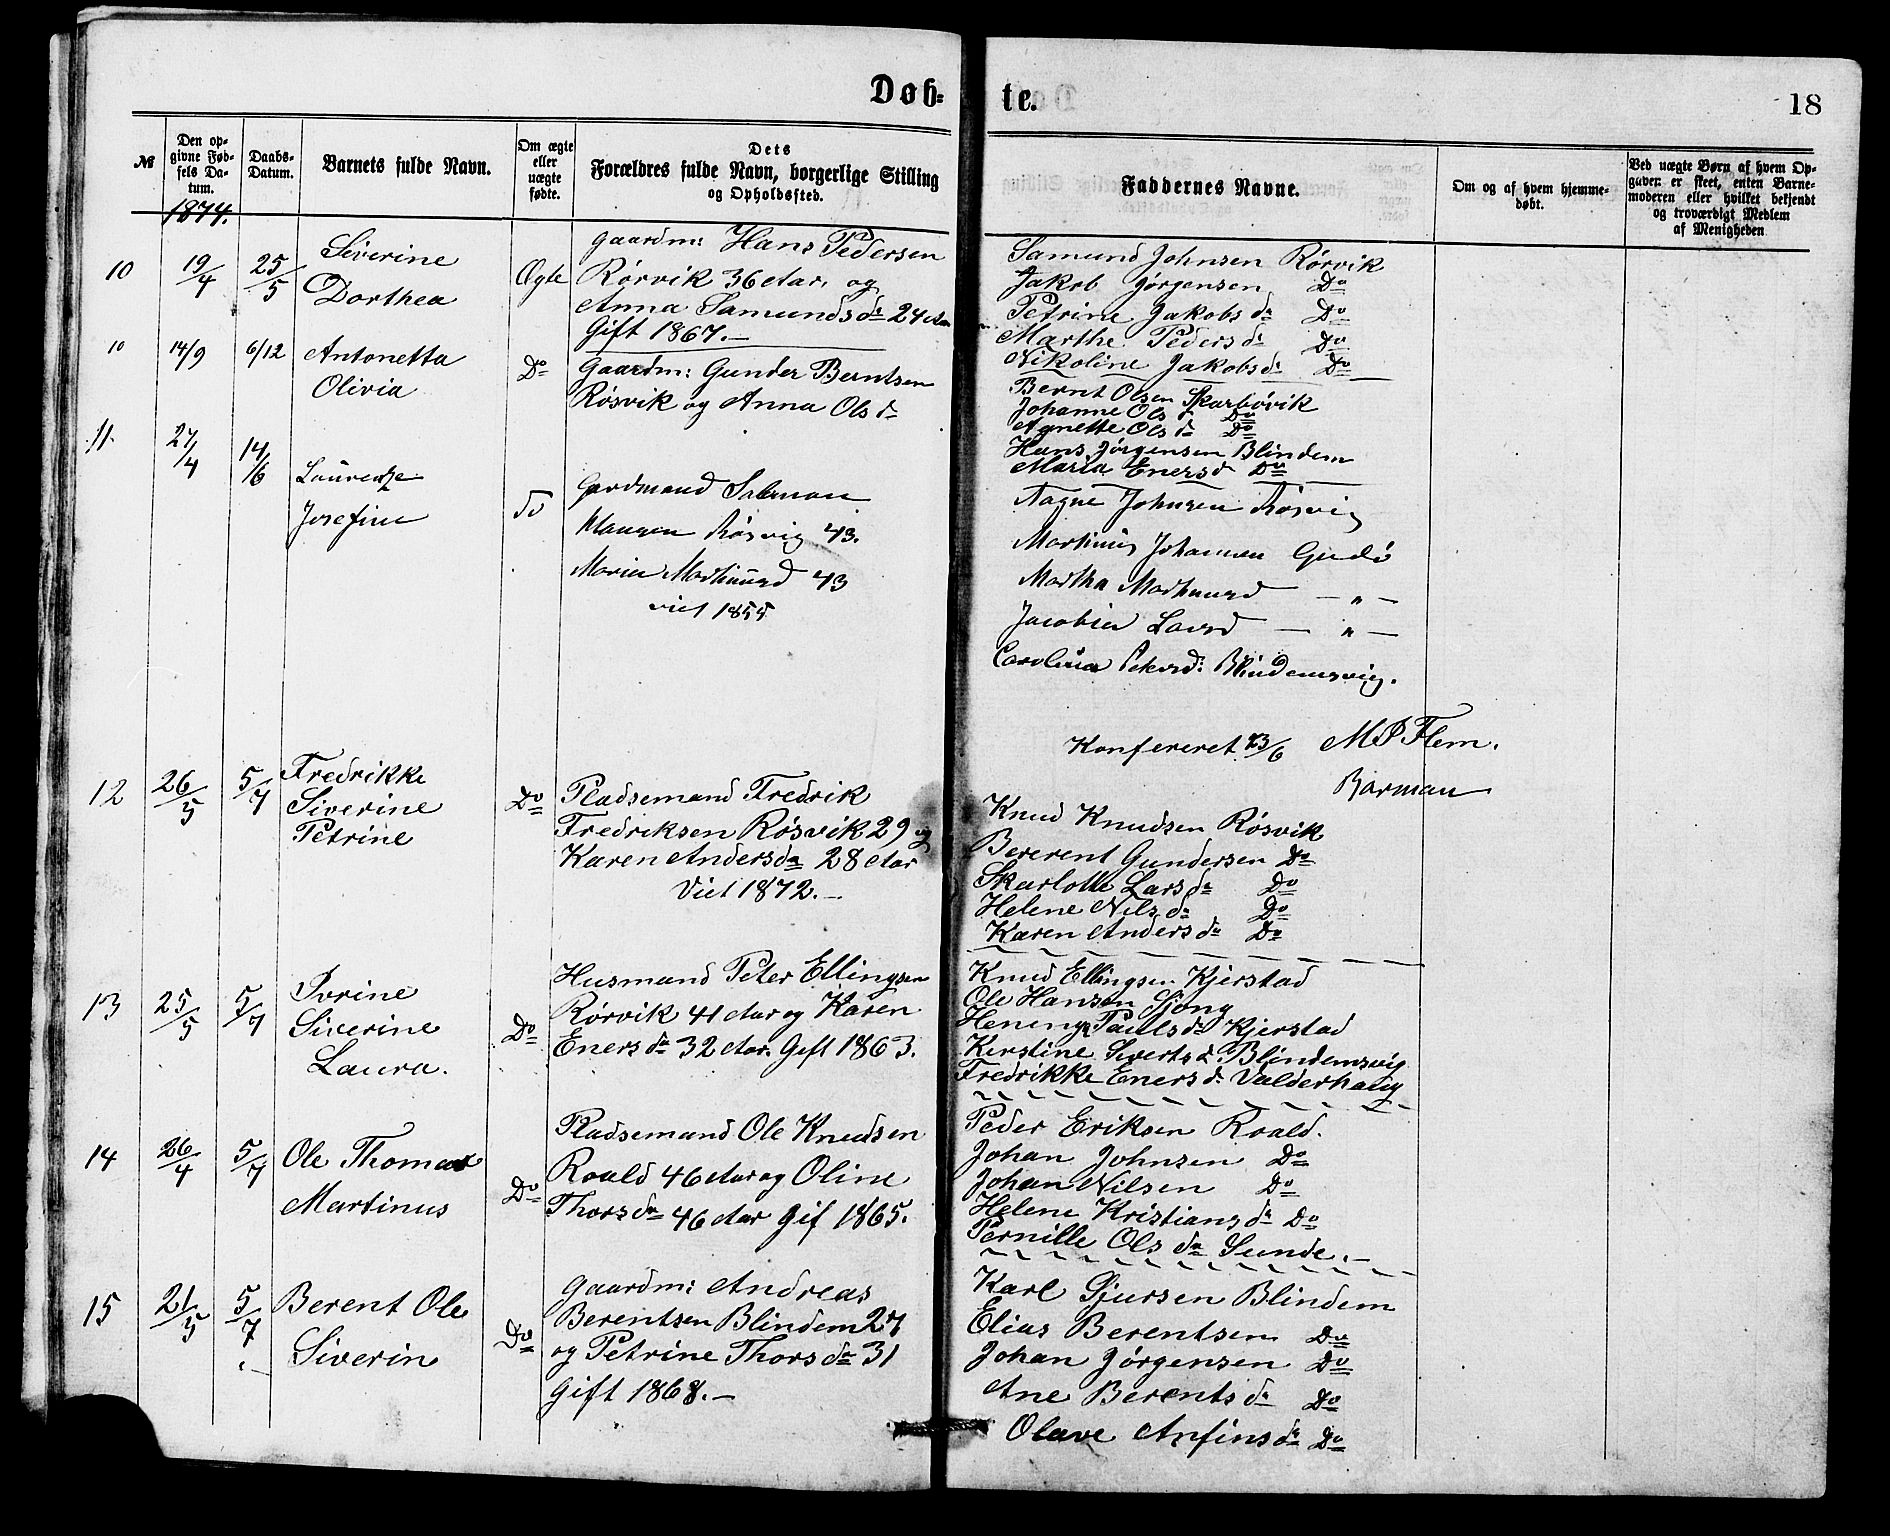 Døb-
te.
18
№
Den op-
givne Fød-
sels Da-
tum.
Daabs-
Datum.
Barnets fulde Navn.
Om ægte
eller
uægte
fødte.
Dets
Forældres fulde Navn, borgerlige Stilling
og Opholdssted.
Faddernes Navne.
Om og af hvem hjemme-
døbt.
Ved uægte Børn af hvem Op-
gaven er skeet, enten Barne-
moderen eller hvilket bekjendt
og troværdigt Medlem
af Menigheden
1874.
10
19/4
25/5
Siverine
Dorthea
Ægte
Gaardm: Hans Pedersen
Rørvik 36 Aar, og
Anna Samundsdr 24 Aar
Gift 1867.—
Samund Johnsen Rørvik
Jakob Jørgensen Do
Petrine Jakobsdr Do
Marthe Pedersdr Do
Nikoline Jakobsdr Do
10
14/9
6/12
Antonetta
Olivia
Do
Gaardm: Gunder Berntsen
Røsvik og Anna Olsdr
Bernt Olsen Skarbøvik
Johanne Olsd Do
Agnette Olsdr Do
Hans Jørgensen Blindem
Maria Enersd Do
11.
27/4
14/6
Laurentze
Josefine
do
Gardmand Salamon
Røsvig 43.
Maria 43
viet 1855
Aagne Johnsen Røsvig
Martinus Johannen Godø
Martha — " —
Larsd — " —
Blindemsvig.
Konfereret 23/6 M P Flem.
Barman
12
26/5
5/7
Fredrikke
Siverine
Petrine
Do
Pladsemand Fredrik
Fredriksen Røsvik 29 og
Karen Andersdr 28 Aar
Viet 1872.—
Knud Knudsen Røsvik
Bererent Gundersen Do
Skarlotte Larsdr Do
Helene Nilsdr Do
Karen Andersdr Do
13
25/5
5/7
Ivrine
Siverine
Laura.
Do
Husmand Peter Ellingsen
Rørvik 41 Aar og Karen
Enersdr 32 Aar. Gift 1863.
Knud Ellingsen Kjerstad
Ole Hansen Sjong
Paulsdr Kjerstad
Kirstine Sivertsd. Blindemsvig
Fredrikke Enersdr Valderhaug
14
26/4
5/7
Ole Thomas
Martinus
Do
Pladsemand Ole Knudsen
Roald 46 Aar og Oline
Thorsdr 46 Aar Gif 1865.
Peder Eriksen Roald.
Johan Johnsen Do
Johan Nilsen Do
Helene Kristiansdr Do
Pernille Olsdr Sunde.—
15
21/5
5/7
Berent Ole
Siverin
Do
Gaardm: Andreas
Berentsen Blindem 27
og Petrine Thorsdr 31
Gift 1868.—
Karl Gjursen Blindem
Elias Berentsen Do
Johan Jørgensen Do
Ane Berentsdr Do
Olave Anfinsdr Do